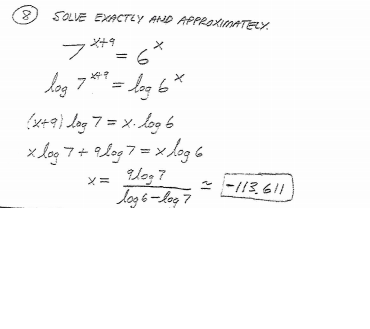 ⑧ SOLVE EXACTLY AND APPROXIMATELY.
7^(x+9) = 6^x
log 7^(x+9) = log 6^x
(x+9) log 7 = x · log 6
x log 7 + 9 log 7 = x log 6
x = 9 log 7 / (log 6 - log 7) ≈ -113.611